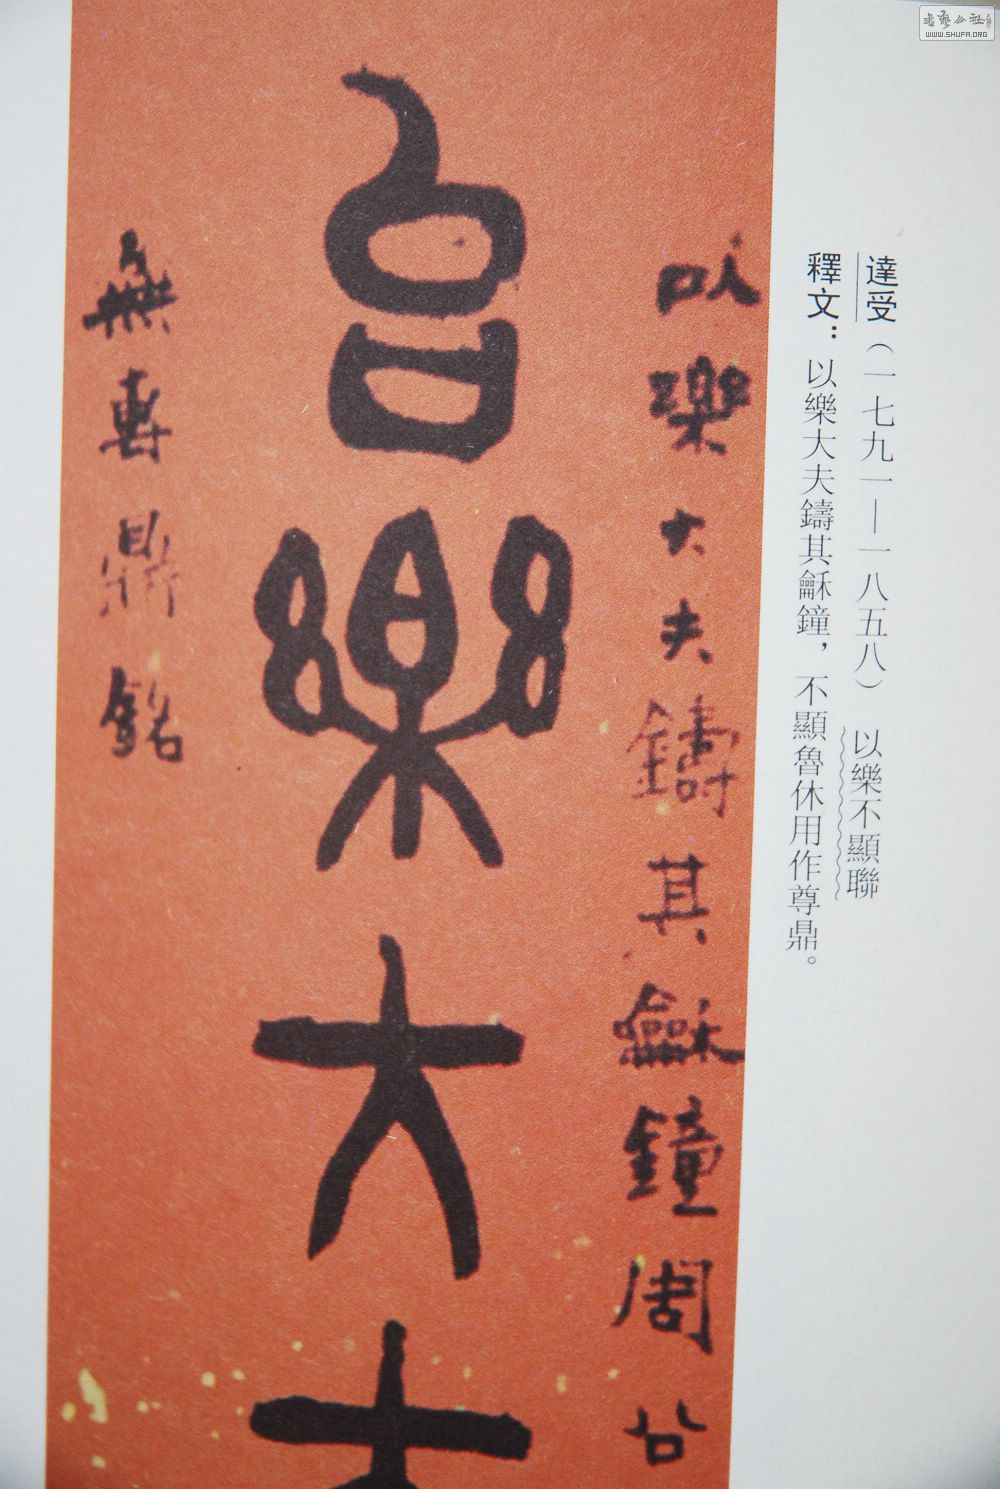 達受（一七九一—一八五八） 以樂不顯聯
釋文：以樂大夫鑄其龢鐘，不顯魯休用作尊鼎。
以樂大夫鑄其龢鐘周公
㠯樂大夫
無專鼎銘
WWW.SHUFA.ORG